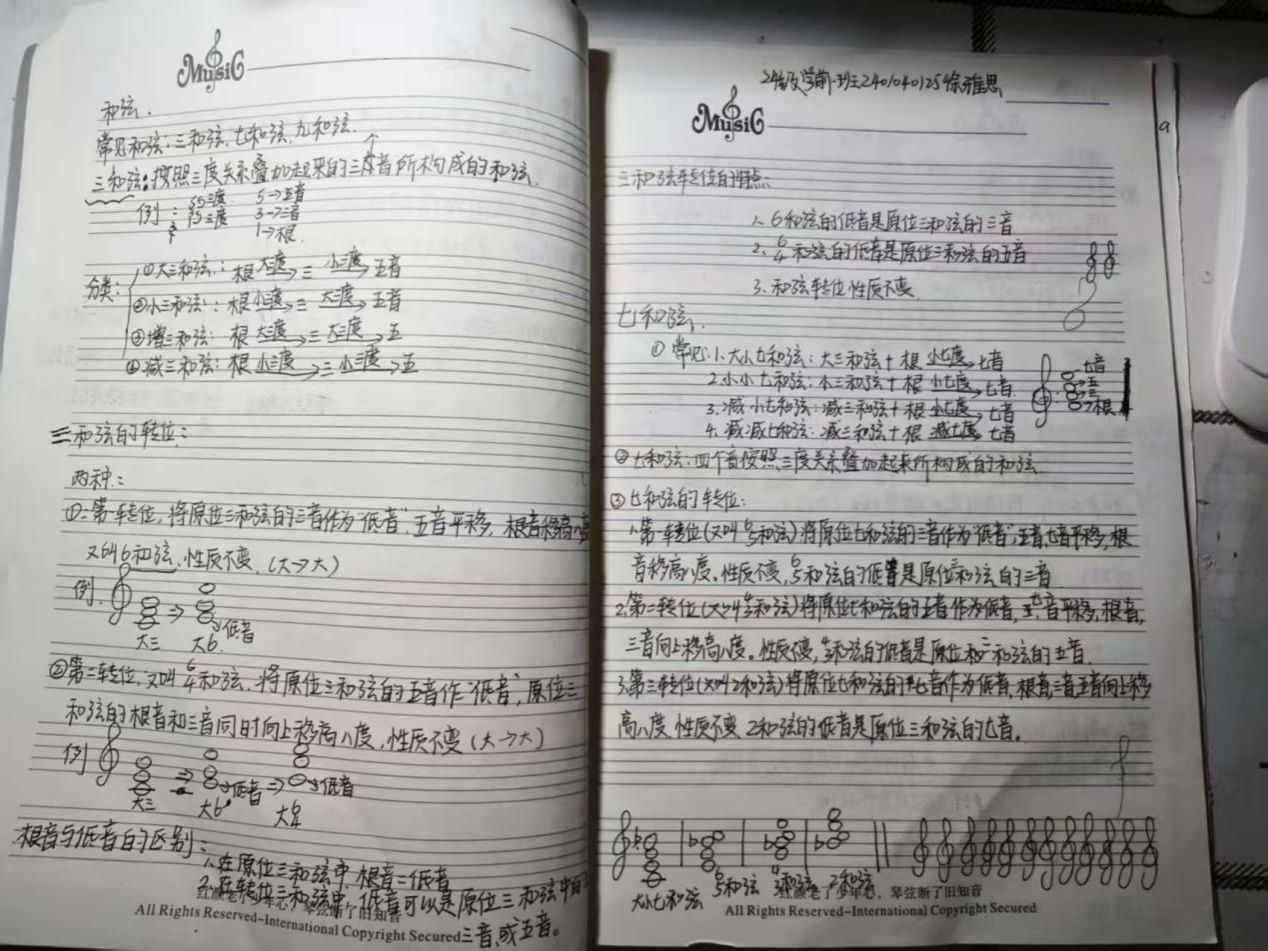 MusiC
和弦.
常见和弦:三和弦.七和弦.九和弦.
三和弦:按照三度关系叠加起来的三个音所构成的和弦.
例: 5 三度 5→五音
3 三度 3→三音
1 1→根.
分类: ①大三和弦:根 大三度→三 小三度→五音
②小三和弦:根 小三度→三 大三度→五音
③增三和弦:根 大三度→三 大三度→五
④减三和弦:根 小三度→三 小三度→五
三和弦的转位:
两种:
①:第一转位,将原位三和弦的三音作为"低音"五音平移,根音移高八度
又叫6和弦,性质不变.(大→大)
例. 低音
大三 大6.
②第二转位,又叫6/4和弦,将原位三和弦的五音作"低音",原位三
和弦的根音和三音同时向上移高八度,性质不变(大→大)
例 低音 低音
大三 大6 大6/4
根音与低音的区别:
1.在原位三和弦中 根音=低音
2.在转位三和弦中,低音可以是原位三和弦中的
三音或五音。
红颜老了少年心,琴弦断了旧知音
All Rights Reserved–International Copyright Secured
24级学前一班2401040125徐雅思
MusiC
a
三和弦转位的特点:
1、6和弦的低音是原位三和弦的三音
2、6/4和弦的低音是原位三和弦的五音
3、和弦转位性质不变
七和弦.
① 常见:1.大小七和弦:大三和弦+根 小七度→七音
2.小小七和弦:小三和弦+根 小七度→七音
3.减小七和弦:减三和弦+根 小七度→七音
4.减减七和弦:减三和弦+根 减七度→七音
七音
五
三
根
②七和弦:四个音按照三度关系叠加起来所构成的和弦
③七和弦的转位:
1.第一转位(又叫6/5和弦)将原位七和弦的三音作为"低音",五音七音平移,根
音移高八度。性质不变,6/5和弦的低音是原位和弦的三音
2.第二转位(又叫4/3和弦)将原位七和弦的五音作为低音,七音平移,根音,
三音向上移高八度。性质不变,4/3和弦的低音是原位和弦的五音.
3.第三转位(又叫2和弦)将原位七和弦的七音作为低音,根音三音五音向上移
高八度,性质不变 2和弦的低音是原位三和弦的七音。
大小七和弦 6/5和弦 4/3和弦 2和弦
红颜老了少年心,琴弦断了旧知音
All Rights Reserved–International Copyright Secured